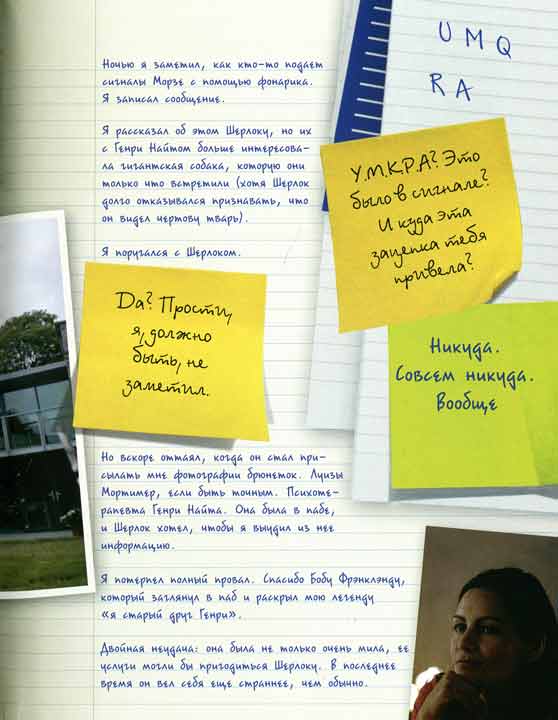 Ночью я заметил, как кто-то подает
сигналы Морзе с помощью фонарика.
Я записал сообщение.
Я рассказал об этом Шерлоку, но их
с Генри Найтом больше интересова-
ла гигантская собака, которую они
только что встретили (хотя Шерлок
долго отказывался признавать, что
он видел чертову тварь).
Я поругался с Шерлоком.
UMQ
RA
У.М.К.Р.А? Это
было в сигнале?
И куда эта
зацепка тебя
привела?
Да? Прости,
я, должно
быть, не
заметил.
Никуда.
Совсем никуда.
Вообще
Но вскоре оттаял, когда он стал при-
сылать мне фотографии брюнеток. Луизы
Мортимер, если быть точным. Психоте-
рапевта Генри Найта. Она была в пабе,
и Шерлок хотел, чтобы я выудил из нее
информацию.
Я потерпел полный провал. Спасибо Бобу Фрэнклэнду,
который заглянул в паб и раскрыл мою легенду
«я старый друг Генри».
Двойная неудача: она была не только очень мила, ее
услуги могли бы пригодиться Шерлоку. В последнее
время он вел себя еще страннее, чем обычно.